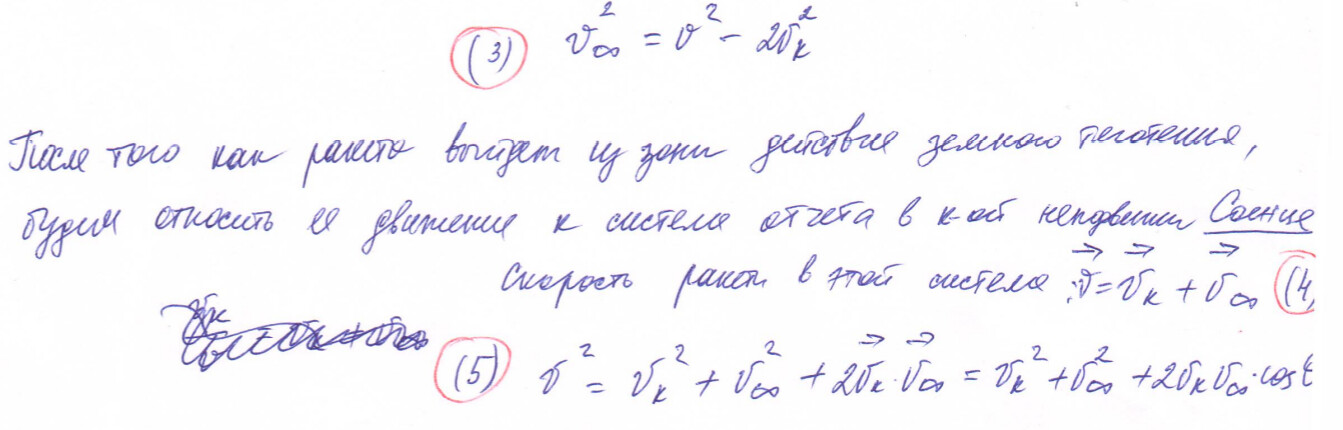 (3) v∞² = v² − 2vк²
После того как ракета выйдет из зони действие земного тяготения,
будем относить ее движение к системе отчета в к-ой неподвижн Солнце
Скорость ракеты в этой системе : v⃗ = v⃗к + v⃗∞ (4,
(5) v² = vк² + v∞² + 2v⃗к·v⃗∞ = vк² + v∞² + 2vкv∞·cos